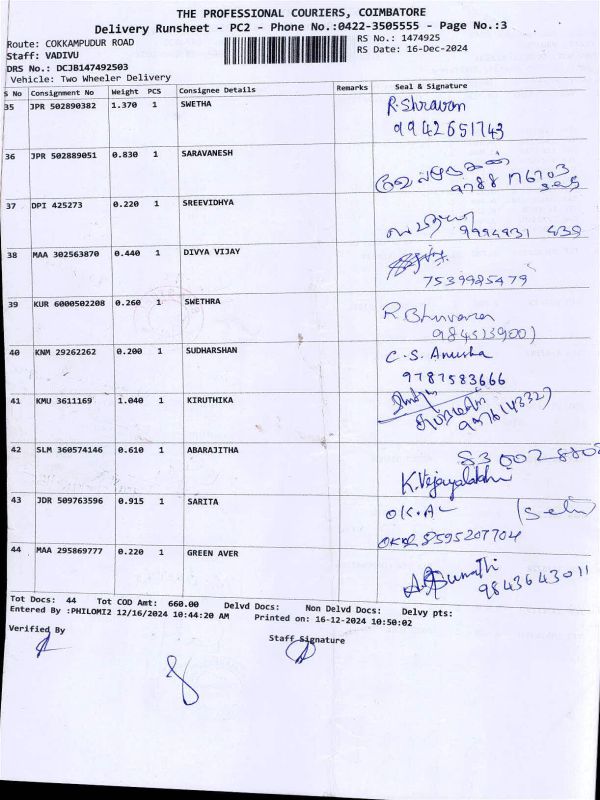 THE PROFESSIONAL COURIERS, COIMBATORE
Delivery Runsheet - PC2 - Phone No.:0422-3505555 - Page No.:3
Route: COKKAMPUDUR ROAD
RS No.: 1474925
Staff: VADIVU
RS Date: 16-Dec-2024
DRS No.: DCJB147492503
Vehicle: Two Wheeler Delivery
S No Consignment No Weight PCS Consignee Details Remarks Seal & Signature
35 JPR 502890382 1.370 1 SWETHA R. Shravan
9942651743
36 JPR 502889051 0.830 1 SARAVANESH
37 DPI 425273 0.220 1 SREEVIDHYA
38 MAA 302563870 0.440 1 DIVYA VIJAY
7539985479
39 KUR 6000502208 0.260 1 SWETHRA R Bhuvana
40 KNM 29262262 0.200 1 SUDHARSHAN C.S. Anusha
9787583666
41 KMU 3611169 1.040 1 KIRUTHIKA
42 SLM 360574146 0.610 1 ABARAJITHA
K. Vejayalakshi
43 JDR 509763596 0.915 1 SARITA
8595207704
44 MAA 295869777 0.220 1 GREEN AVER
9843643011
Tot Docs: 44 Tot COD Amt: 660.00 Delvd Docs: Non Delvd Docs: Delvy pts:
Entered By :PHILOMI2 12/16/2024 10:44:20 AM Printed on: 16-12-2024 10:50:02
Verified By
Staff Signature